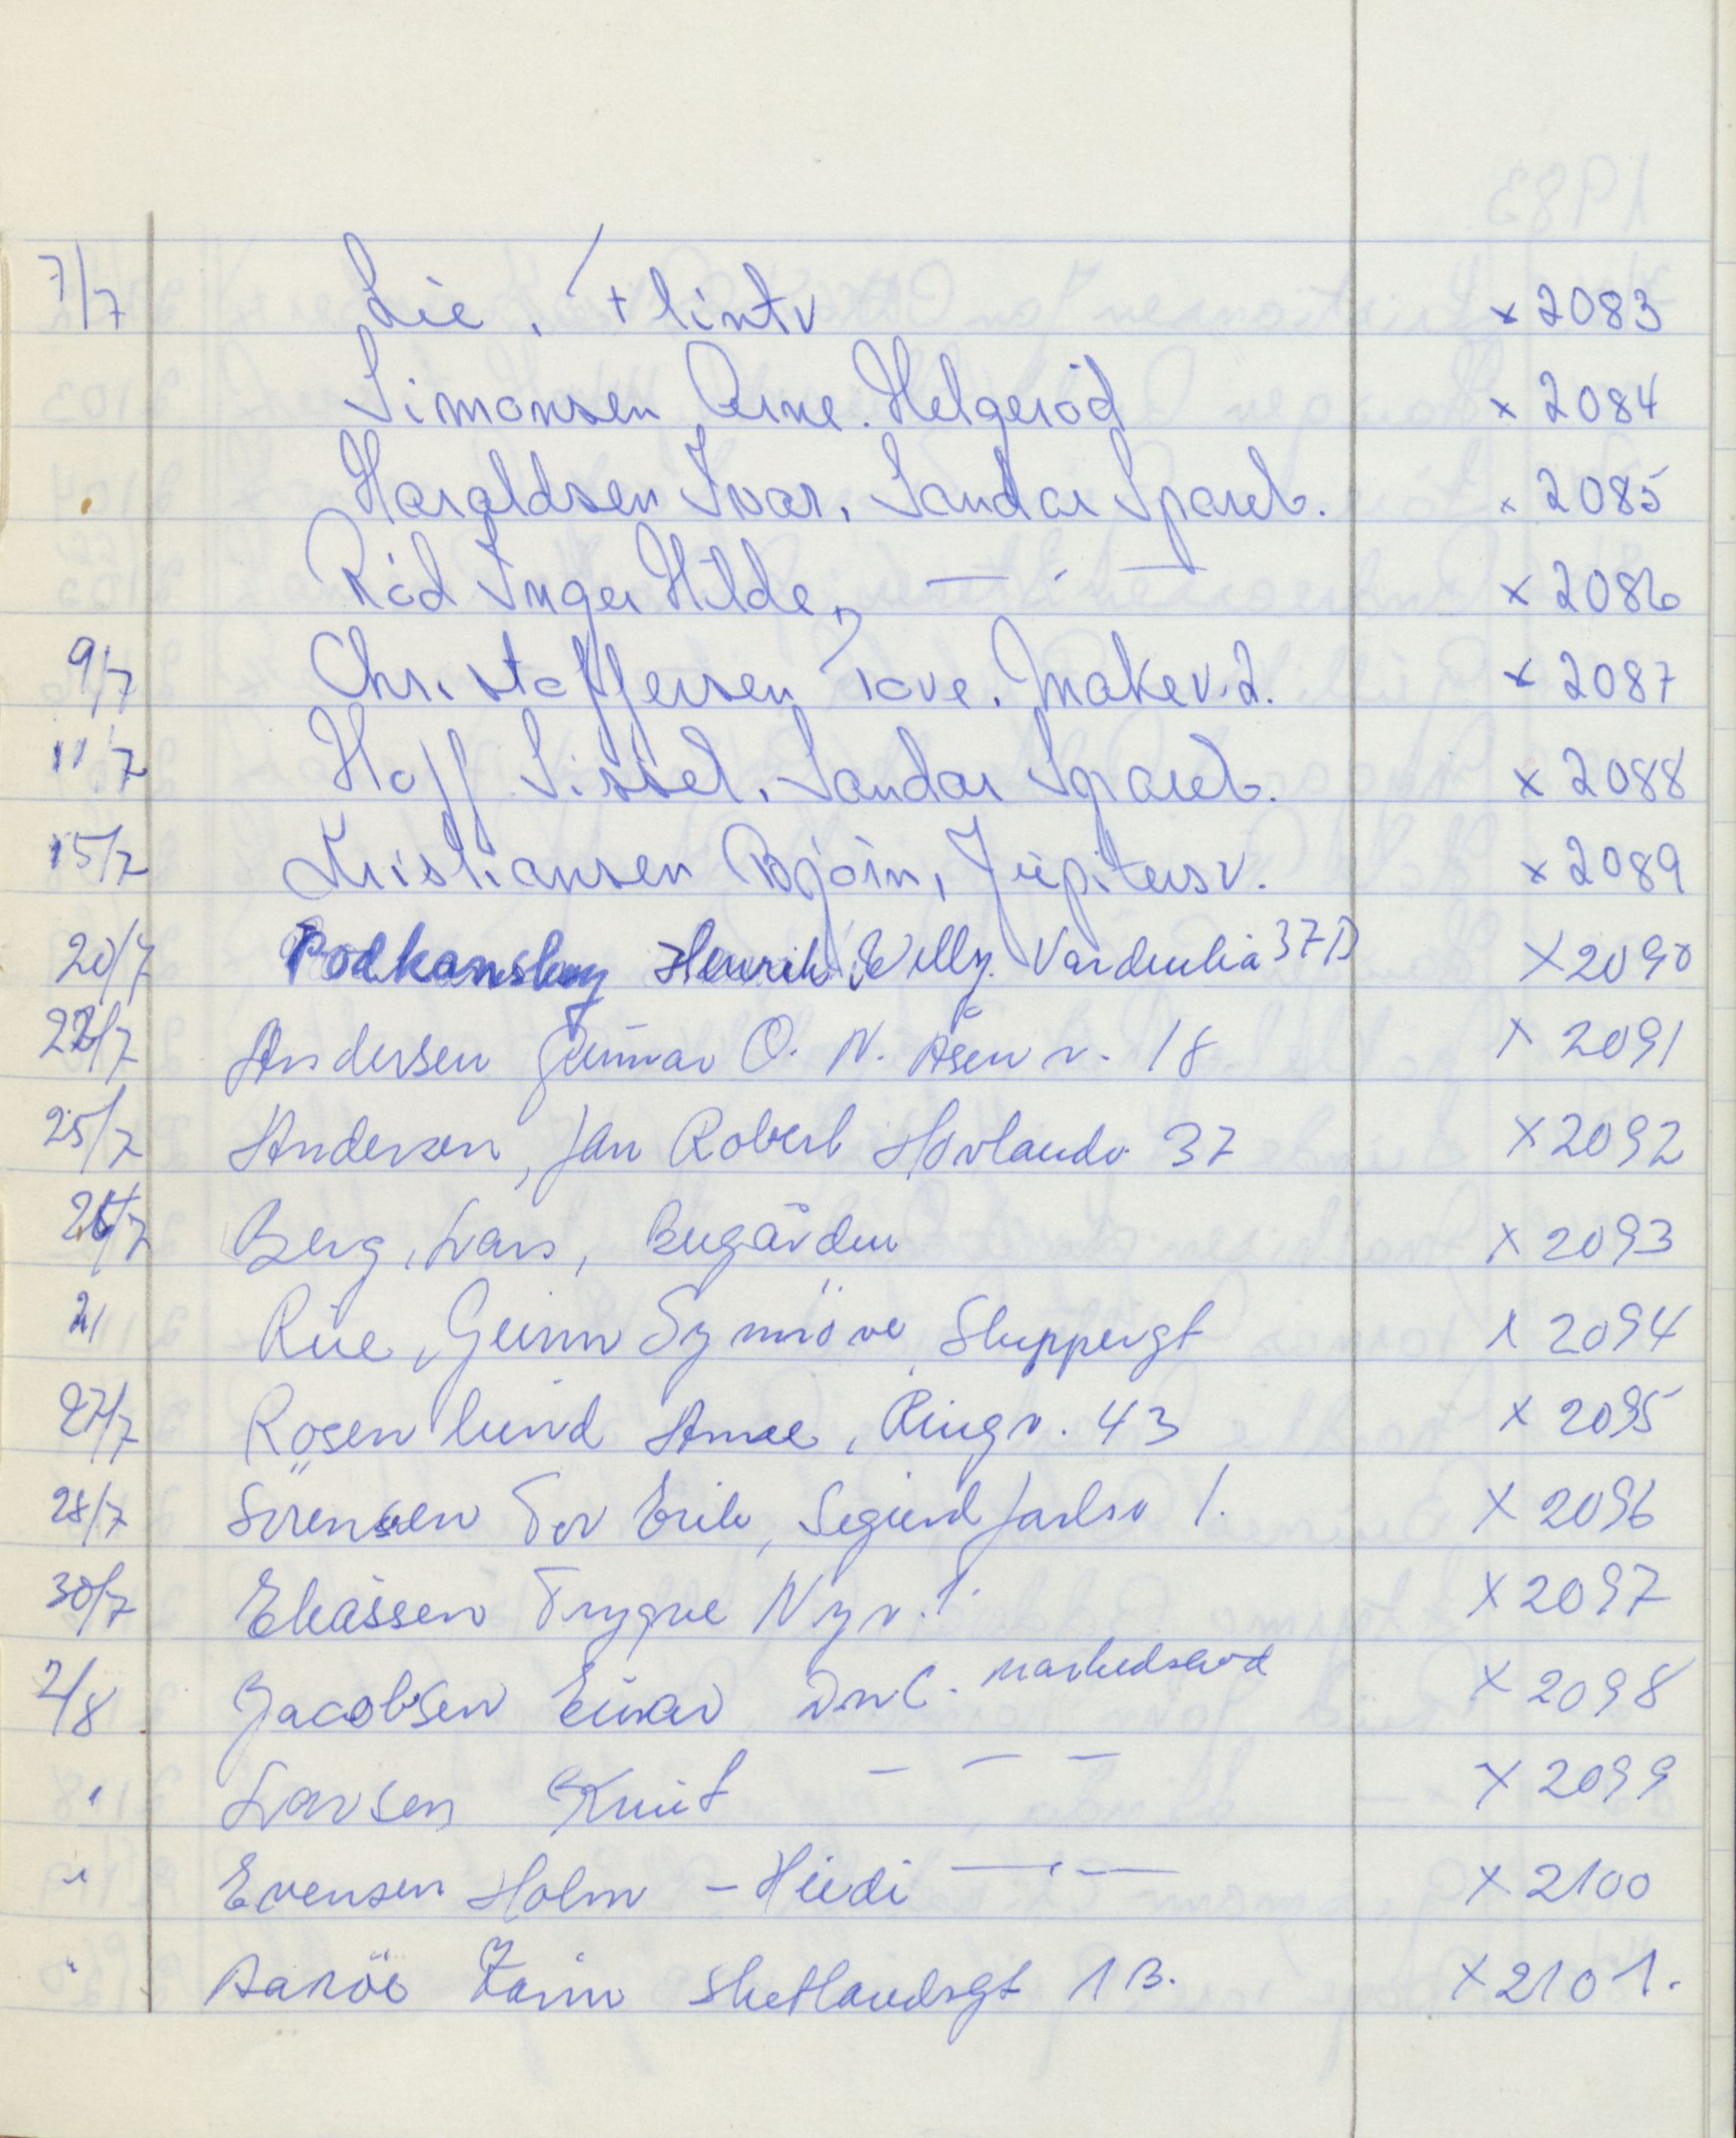 7/7 Lie, Flintv x 2083
Simonsen Arne. Helgeröd x 2084
Haraldsen Ivar, Sandar Spareb. x 2085
Röd Inger Hilde, — " — x 2086
9/7 Christoffersen Tove. Makev. 2. x 2087
11/7 Hoff Sissel, Sandar Spareb. x 2088
15/7 Kristiansen Björn, Jupitersv. x 2089
20/7 Podkansky Henrik Willy. Vardenlia 37D x 2090
22/7 Andersen Gunnar O. N. Åsen v. 18 x 2091
25/7 Andersen, Jan Robert Hovlandv 37 x 2092
26/7 Berg, Lars, Bugården x 2093
21 Rue, Gunn Synnöve, Skippergt x 2094
27/7 Rosenlund Anne, Ringv. 43 x 2095
28/7 Sörensen Tor Erik, Sigurd Jarlsv 1. x 2096
30/7 Eliassen Trygve Nyv. 1. x 2097
2/8 Jacobsen Einar DnC. markedsavd x 2098
" Larsen Knut – — — x 2099
" Evensen Holm – Heidi — " — x 2100
" Aaröe Karin Shetlandsgt 1 B. x 2101.